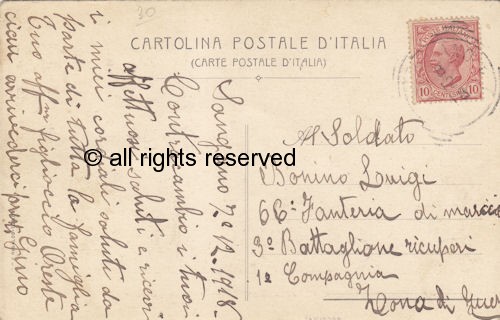 30
CARTOLINA POSTALE D'ITALIA
(CARTE POSTALE D'ITALIA)
POSTE ITALIANE
10 CENTESIMI 10
Al Soldato
Bonino Luigi
66ª Fanteria di marcia
3º Battaglione ricuperi
1ª Compagnia
Zona di Guer
12-1918-
Contraccambio i tuoi
affettuosi saluti e ricevi
i miei cordiali saluti da
parte di tutta la famiglia
Tuo aff figlioccio Oreste
ciau arrivederci
© all rights reserved